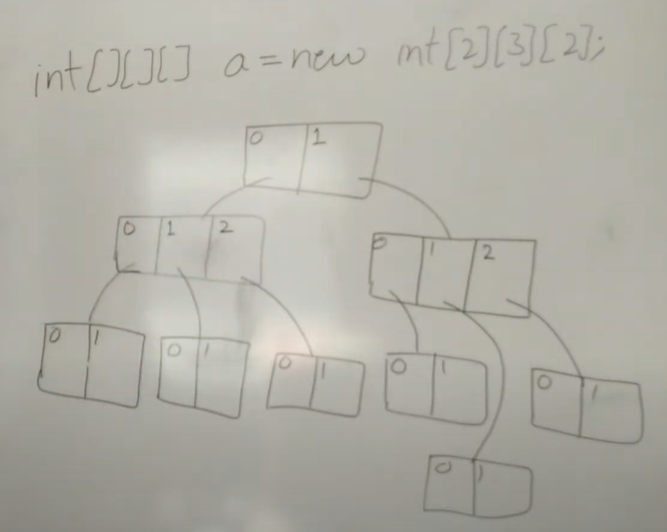 int[][][] a = new int[2][3][2];
0 1
0 1 2 0 1 2
0 1 0 1 0 1 0 1 0 1
0 1